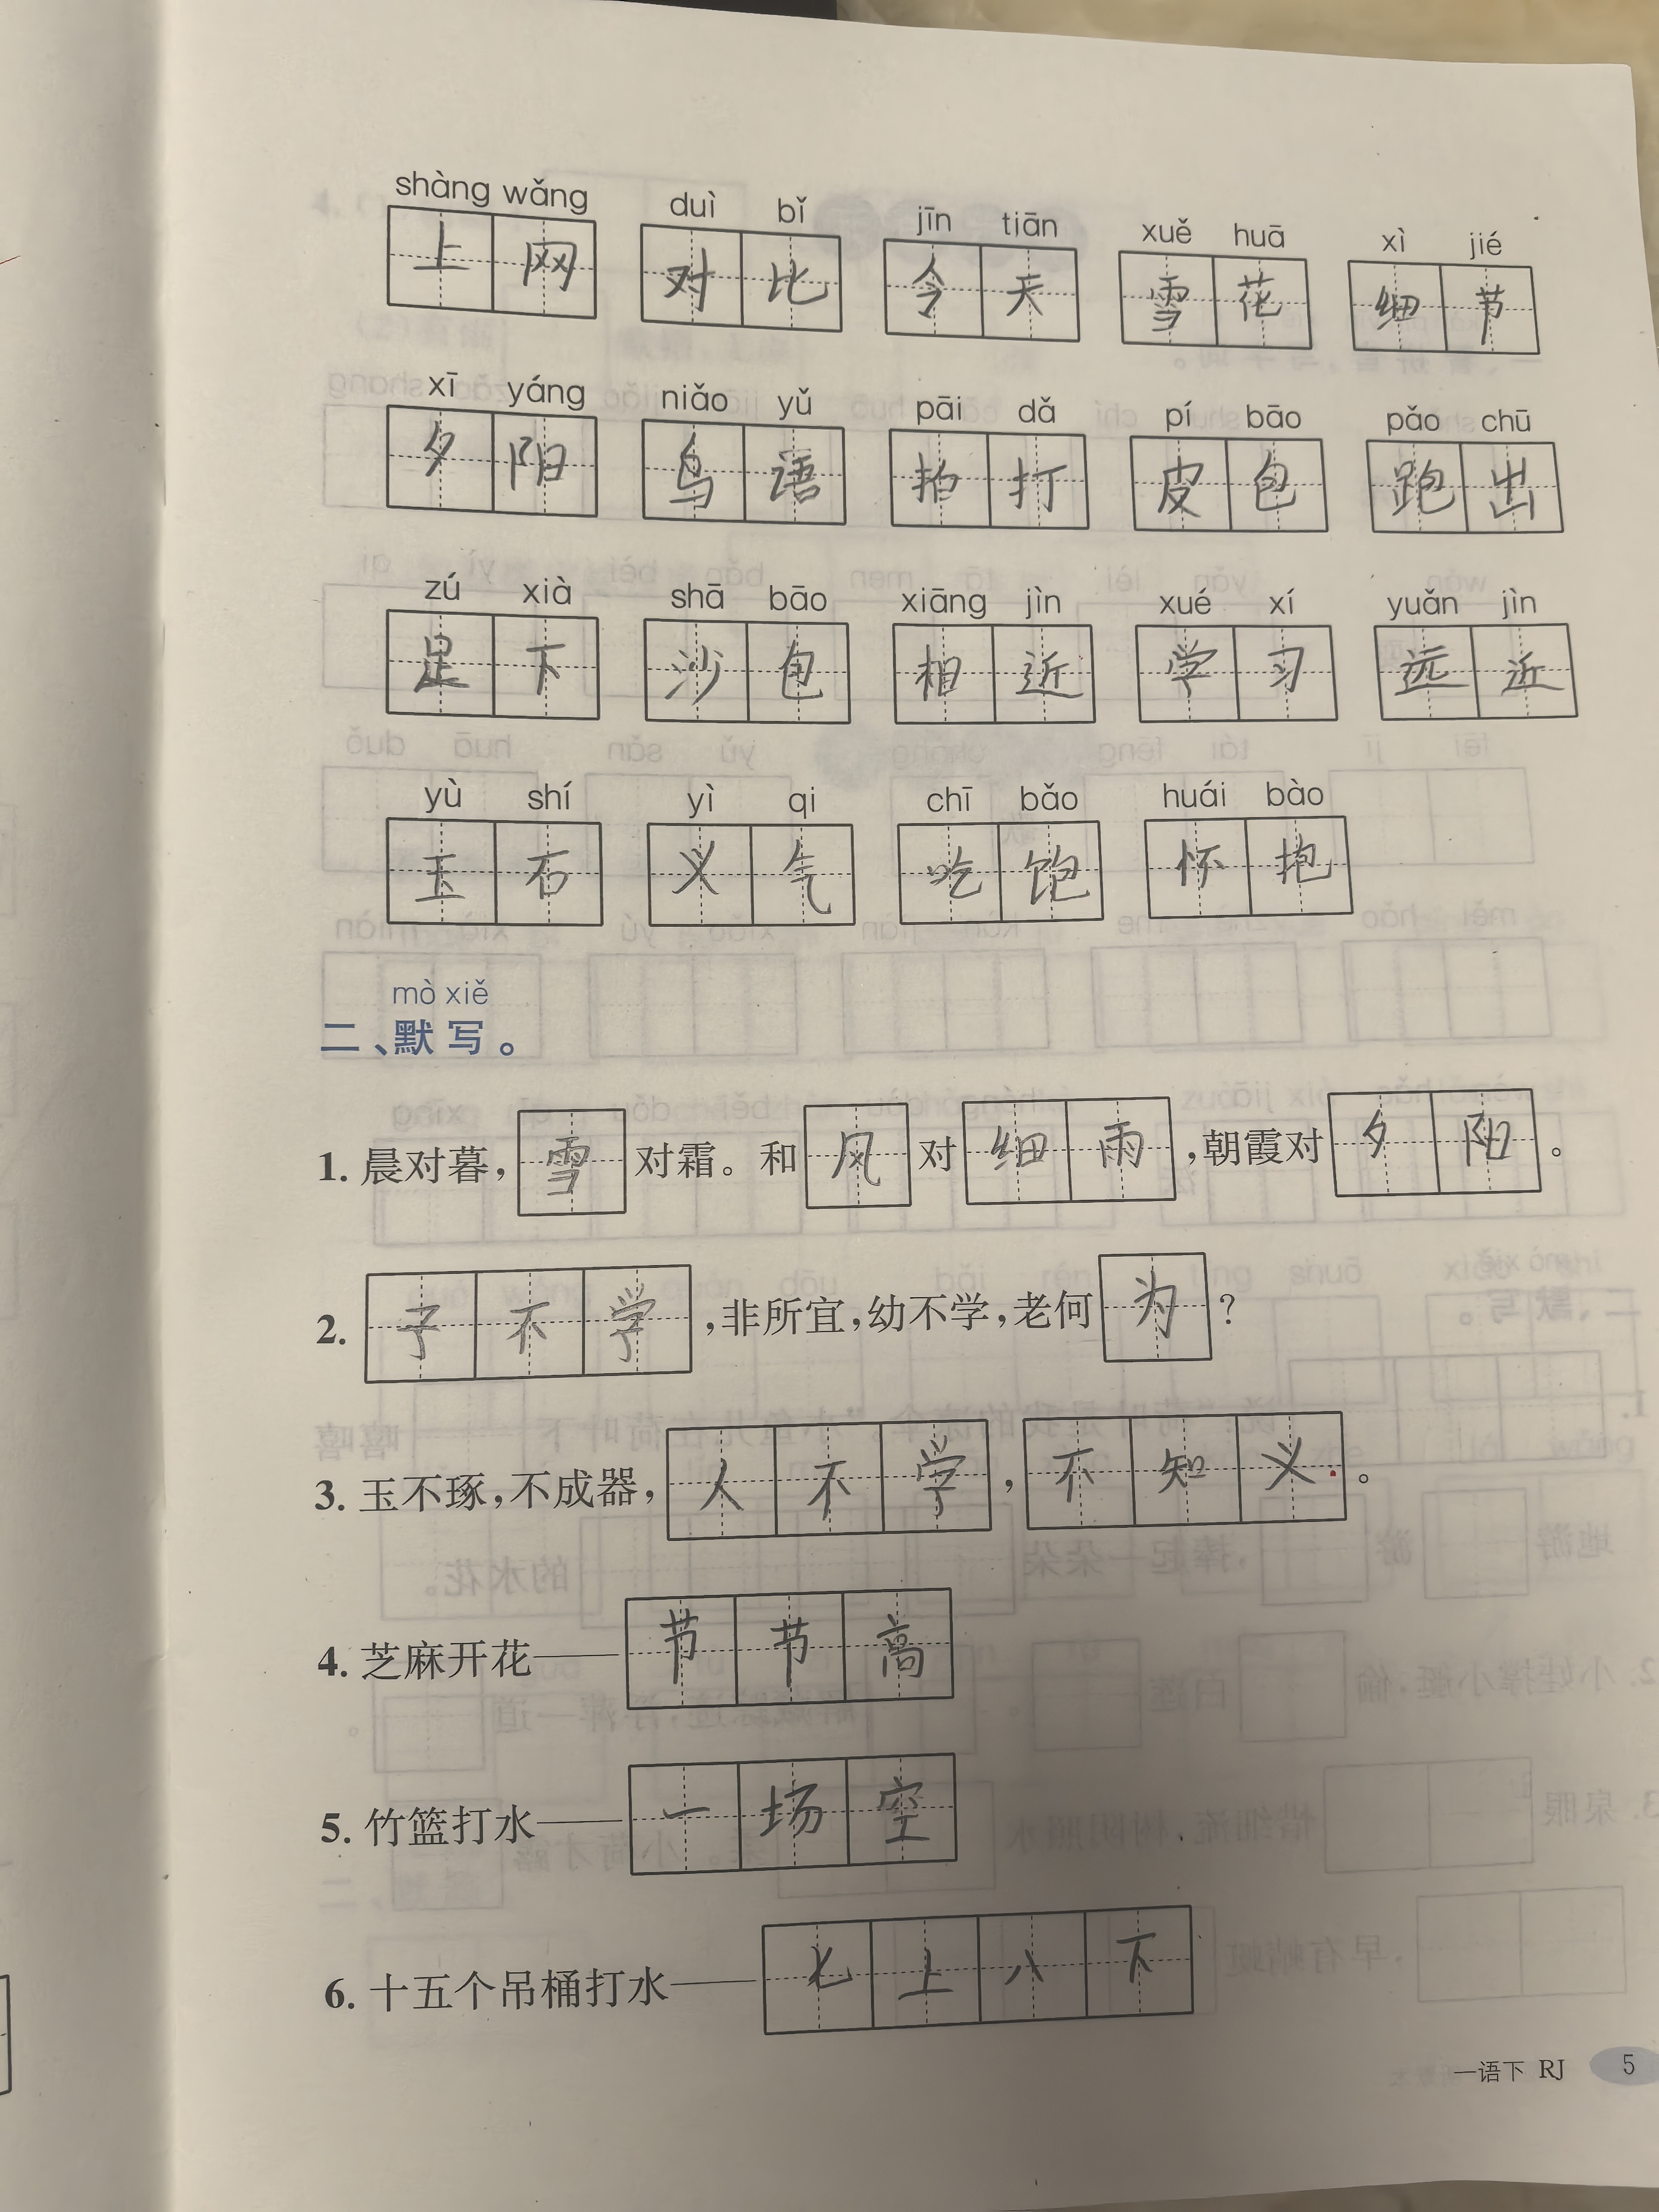 shàng wǎng duì bǐ jīn tiān xuě huā xì jié
上网 对比 今天 雪花 细节
xī yáng niǎo yǔ pāi dǎ pí bāo pǎo chū
夕阳 鸟语 拍打 皮包 跑出
zú xià shā bāo xiāng jìn xué xí yuǎn jìn
足下 沙包 相近 学习 远近
yù shí yì qi chī bǎo huái bào
玉石 义气 吃饱 怀抱
mò xiě
二、默写。
1. 晨对暮,雪对霜。和风对细雨,朝霞对夕阳。
2. 子不学,非所宜,幼不学,老何为?
3. 玉不琢,不成器,人不学,不知义。
4. 芝麻开花——节节高
5. 竹篮打水——一场空
6. 十五个吊桶打水——七上八下
一语下 RJ 5